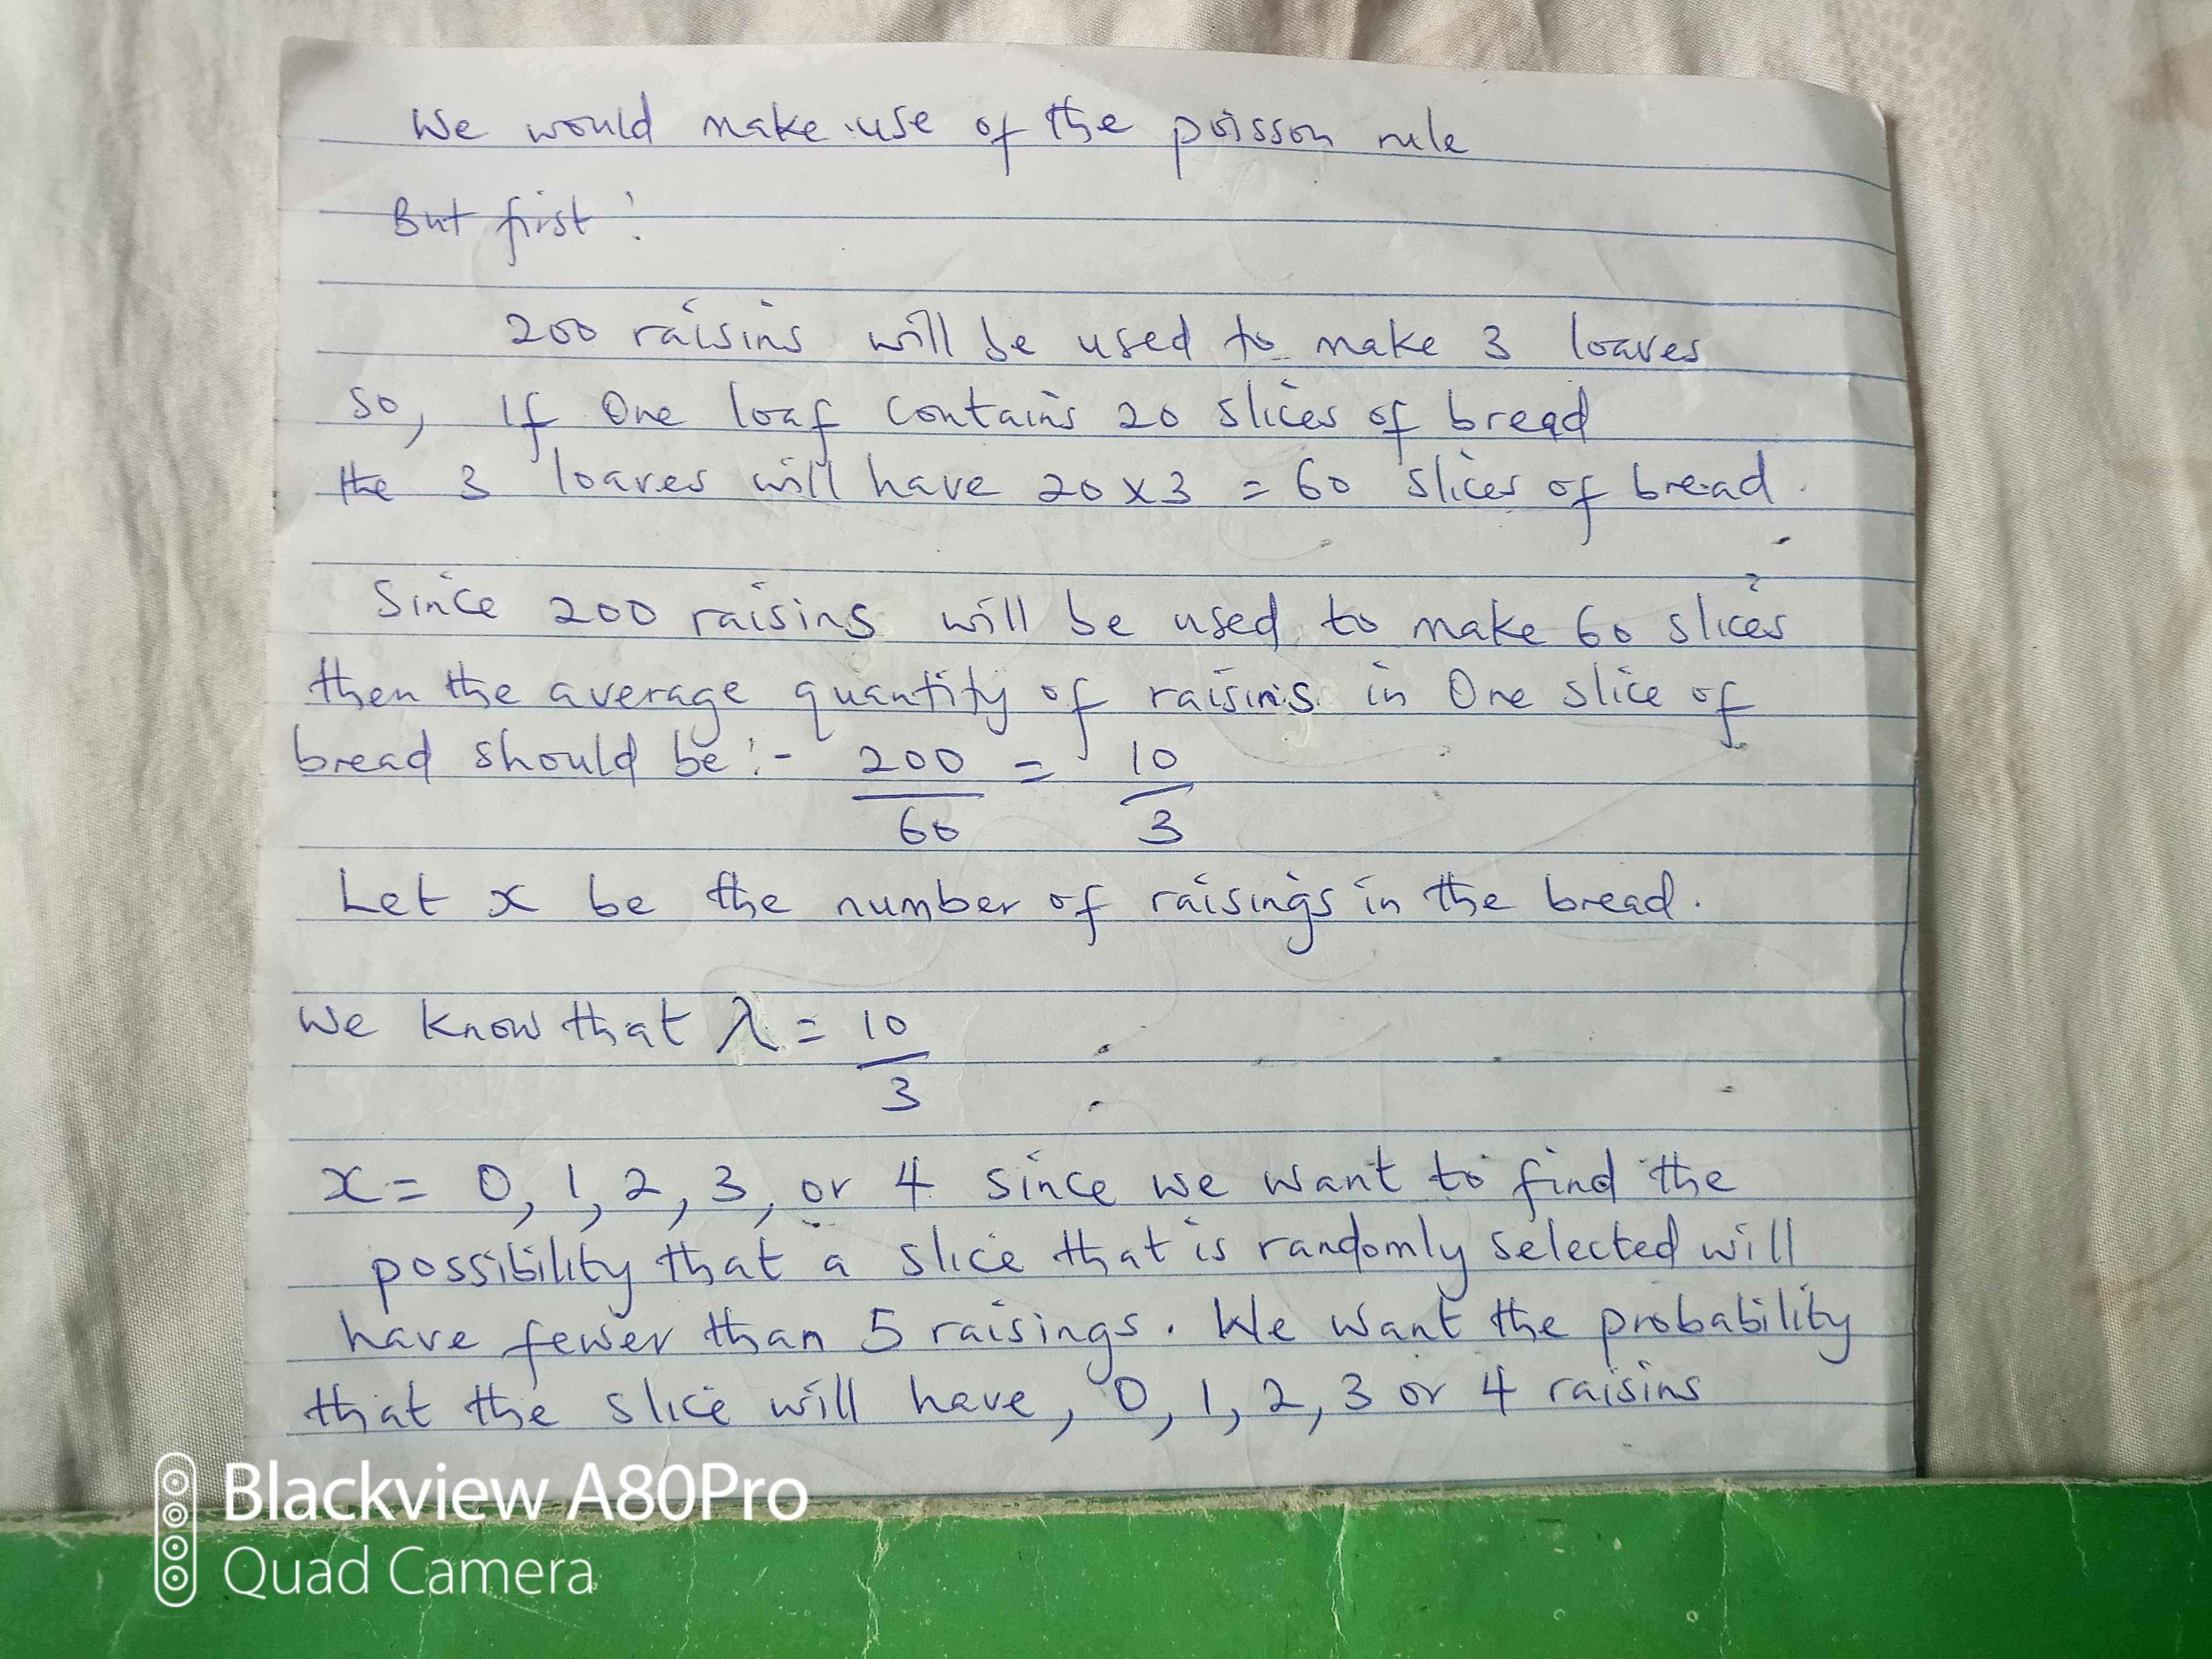 We would make use of the poisson rule
But first:
200 raisins will be used to make 3 loaves
So, If One loaf contains 20 slices of bread
the 3 loaves will have 20 x 3 = 60 slices of bread.
Since 200 raisins will be used to make 60 slices
then the average quantity of raisins in One slice of
bread should be :- 200/60 = 10/3
Let x be the number of raisings in the bread.
We know that λ = 10/3
x = 0, 1, 2, 3, or 4 since we want to find the
possibility that a slice that is randomly selected will
have fewer than 5 raisings. We want the probability
that the slice will have, 0, 1, 2, 3 or 4 raisins
Blackview A80Pro
Quad Camera